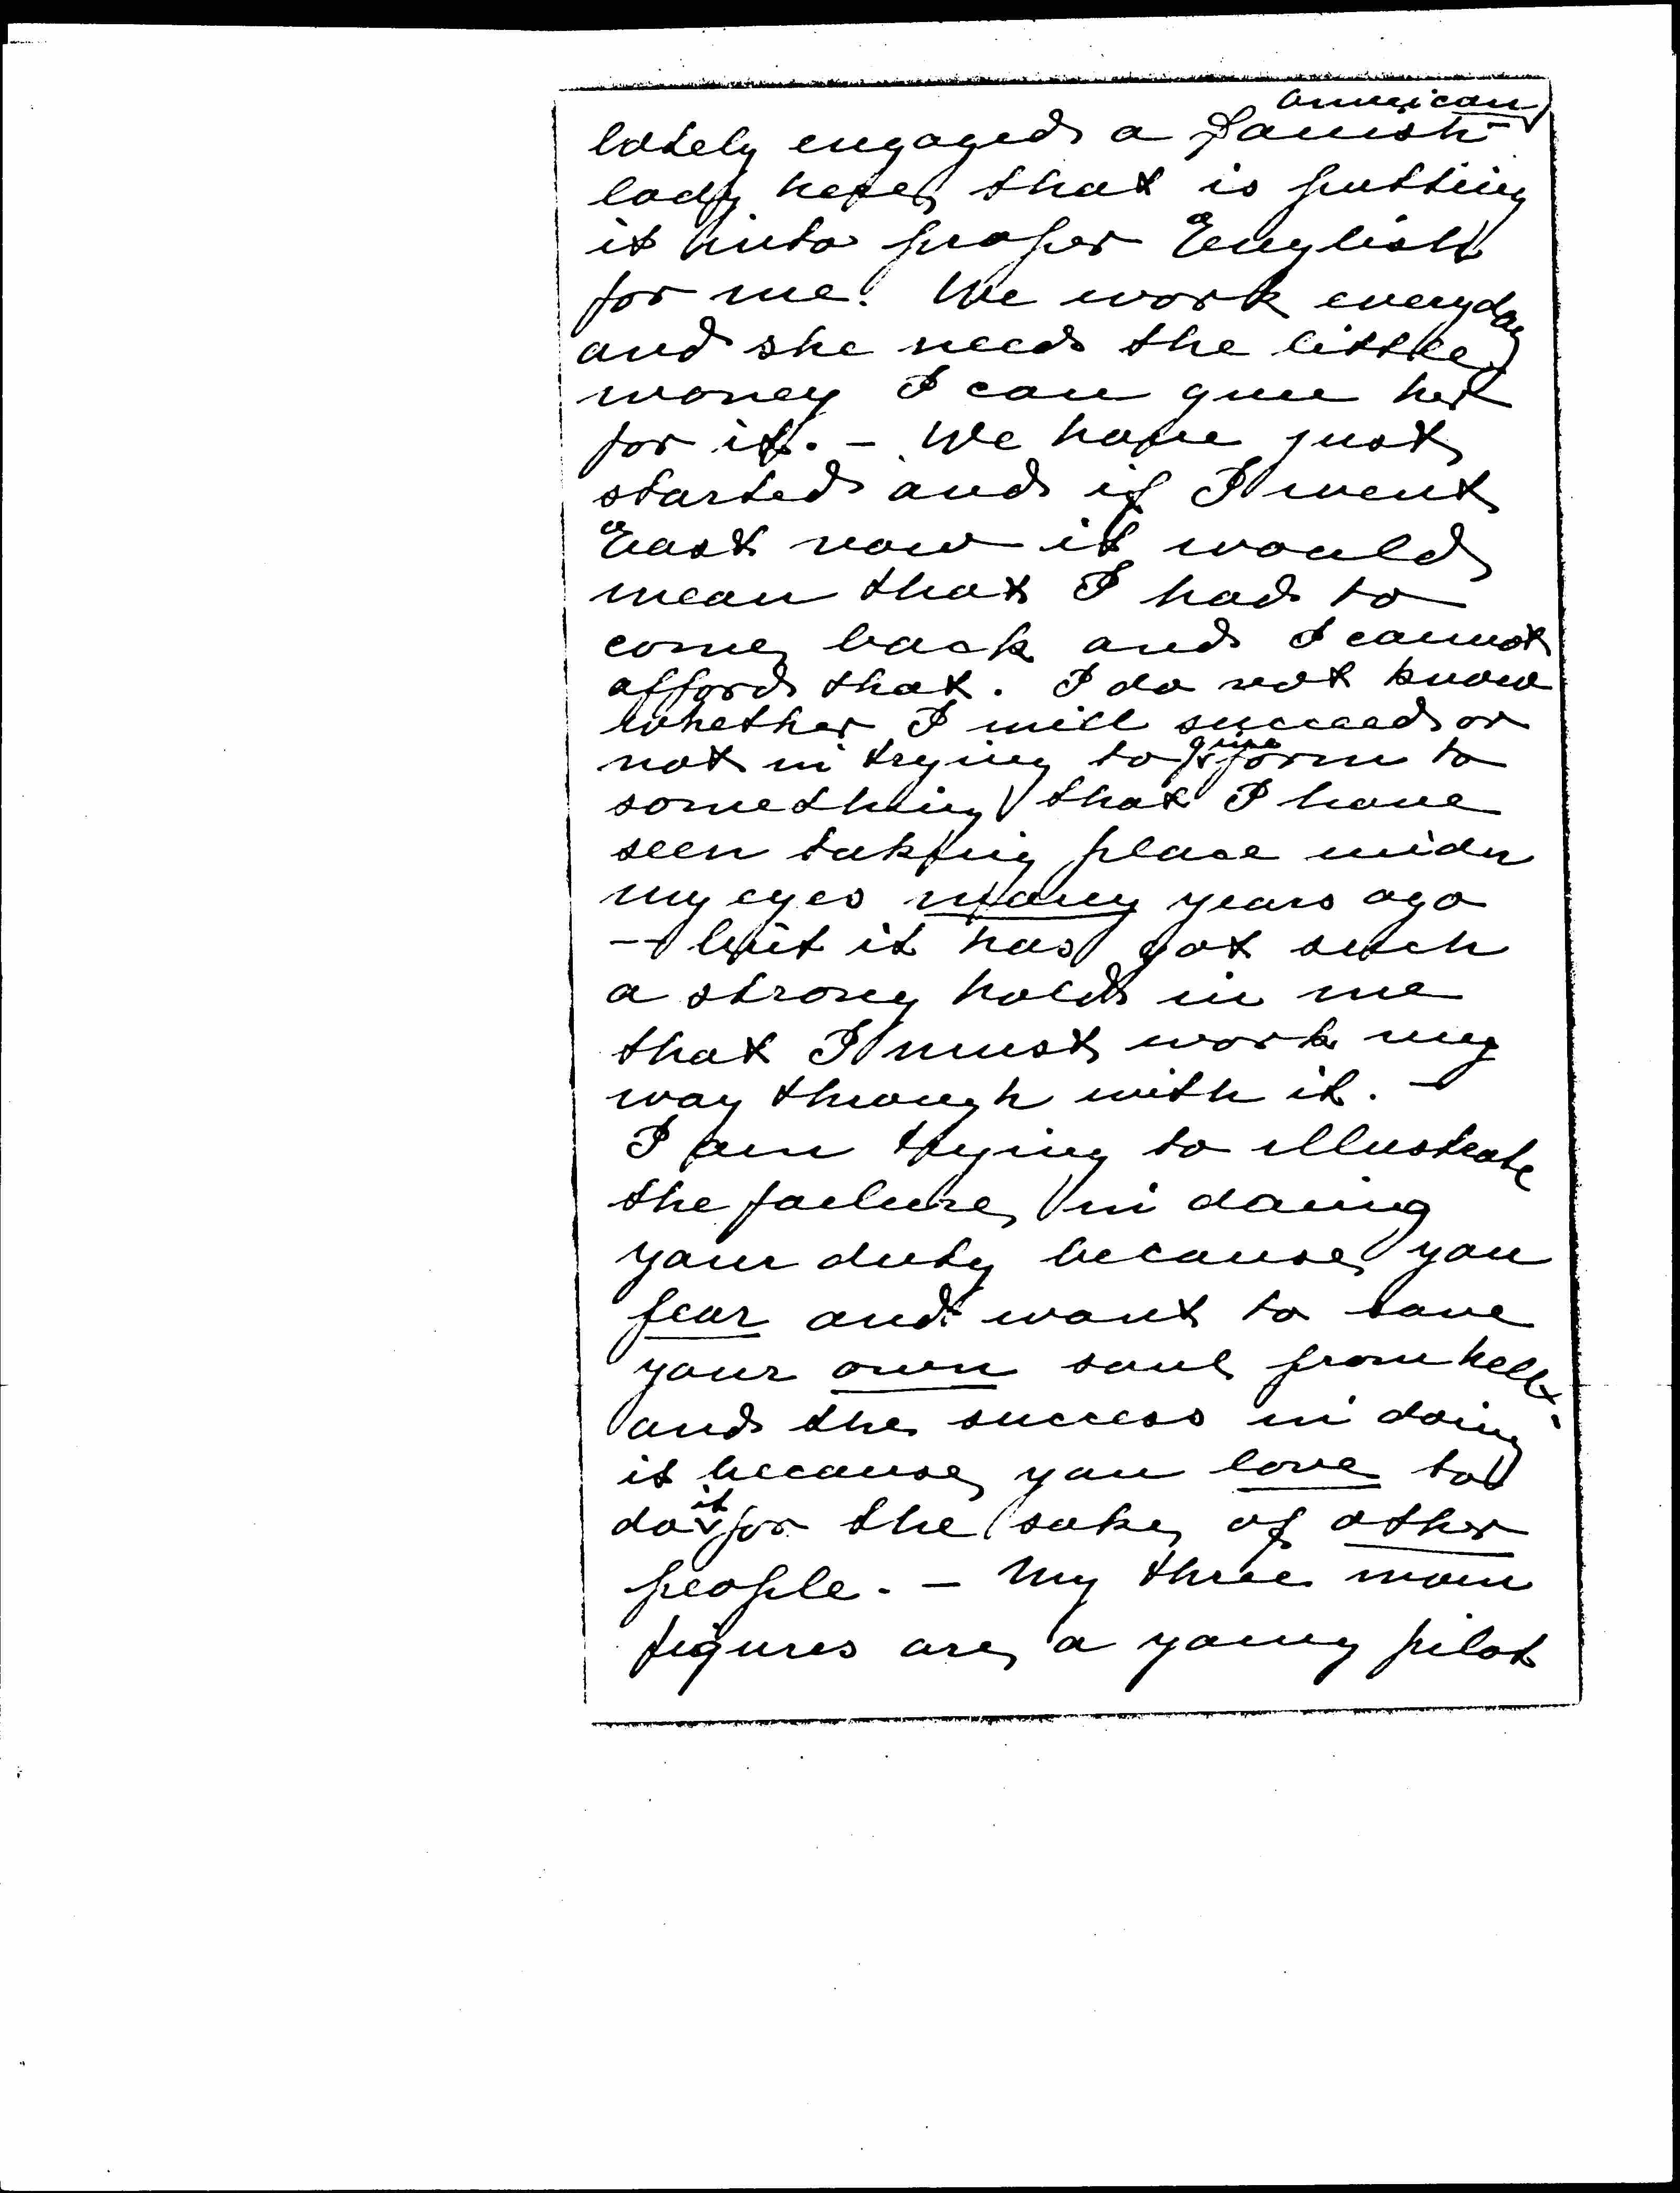 lately engaged a Danish-American
lady here, that is putting
it into proper English
for me. We work everyday
and she needs the little
money I can give her
for it. – We have just
started and if I went
East now it would
mean that I had to
come back and I cannot
afford that. I do not know
whether I will succeed or
not in trying to give form to
something that I have
seen taking place under
my eyes many years ago
– but it has got such
a strong hold in me
that I must work my
way through with it. –
I am trying to illustrate
the failure in doing
your duty because you
fear and want to save
your own soul from hell –
and the success in doing
it because you love to
do it for the sake of other
people. – My three main
figures are, a young pilot